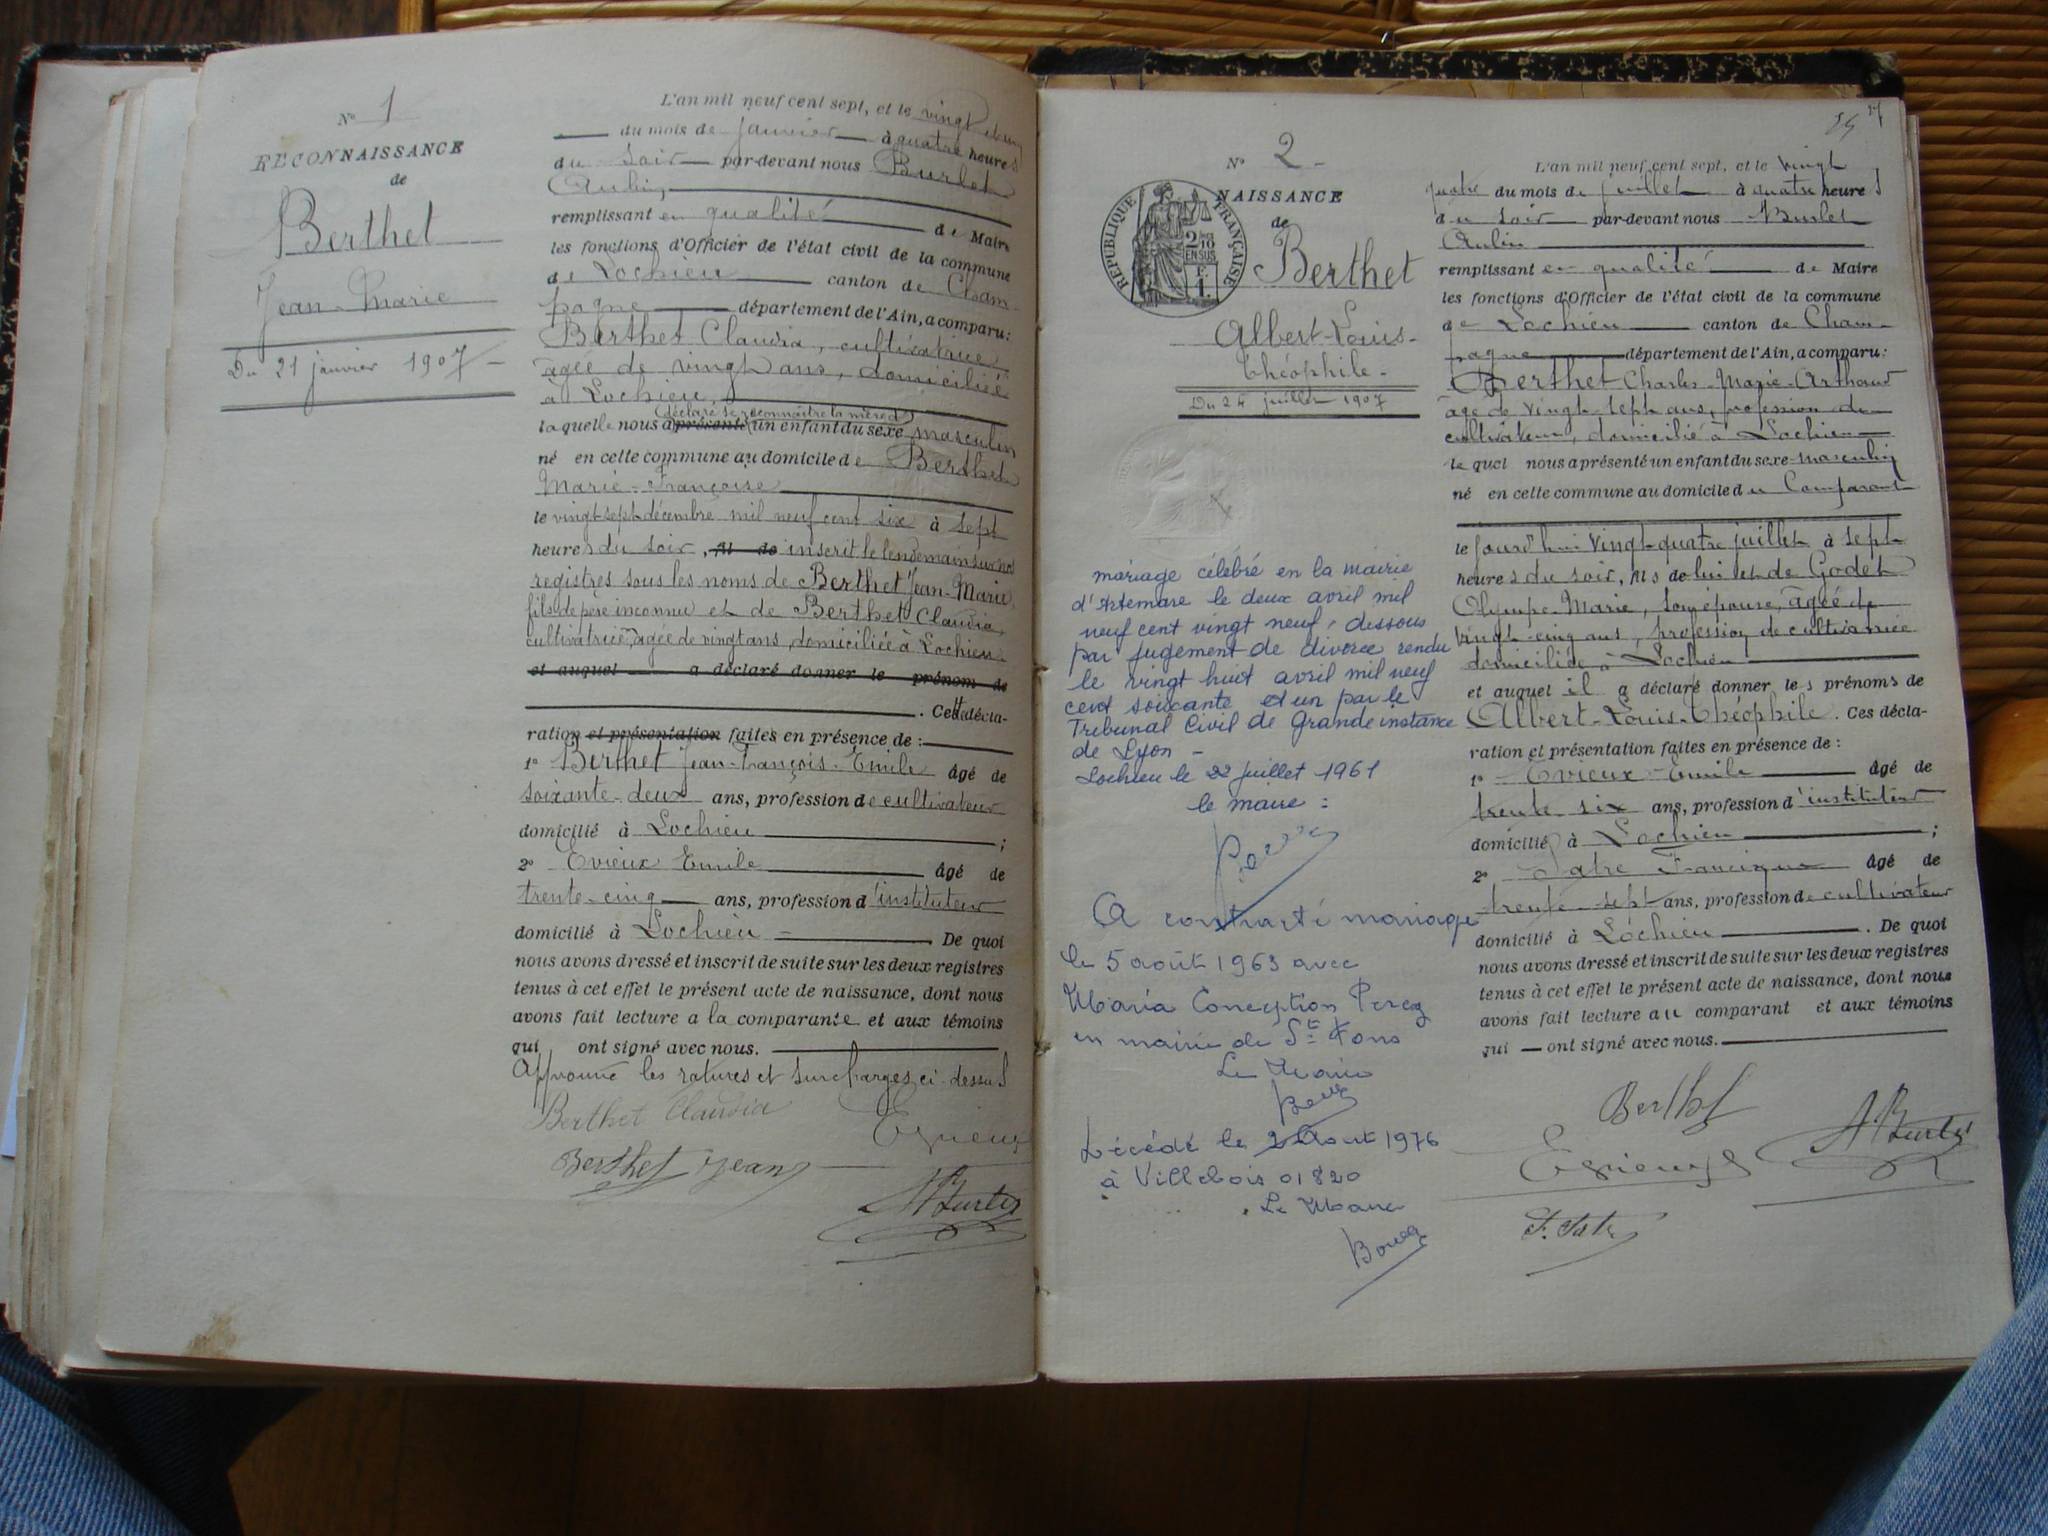 N° 1
RECONNAISSANCE
de
Berthet
Jean-Marie
Du 21 janvier 1907
L'an mil neuf cent sept, et le vingt et un
du mois de janvier à quatre heures
du soir par-devant nous Burlet
Aubin,
remplissant en qualité de Maire
les fonctions d'Officier de l'état civil de la commune
de Lochieu canton de Cham-
pagne département de l'Ain, a comparu:
Berthet Claudia, cultivatrice,
âgée de vingt ans, domiciliée
à Lochieu,
(déclaré se reconnaître la mère d')
laquelle nous a présenté un enfant du sexe masculin
né en cette commune au domicile de Berthet
Marie-Françoise
le vingt sept décembre mil neuf cent six à sept
heures du soir, fils de inscrit le lendemain sur nos
registres sous les noms de Berthet Jean-Marie,
fils de père inconnu et de Berthet Claudia,
cultivatrice, âgée de vingt ans, domiciliée à Lochieu.
et auquel a déclaré donner le prénom de
. Cette décla-
ration et présentation faites en présence de :
1° Berthet Jean-François-Emile âgé de
soixante-deux ans, profession de cultivateur
domicilié à Lochieu ;
2° Evieux Emile âgé de
trente-cinq ans, profession d'instituteur
domicilié à Lochieu . De quoi
nous avons dressé et inscrit de suite sur les deux registres
tenus à cet effet le présent acte de naissance, dont nous
avons fait lecture a la comparante et aux témoins
qui ont signé avec nous.
Approuvé les ratures et surcharges ci-dessus
Berthet Claudia
Evieux
Berthet Jean
A Burlet
17
N° 2
NAISSANCE
de
RÉPUBLIQUE FRANÇAISE
2/10
EN SUS
Berthet
Albert-Louis-
Théophile-
Du 24 juillet 1907
mariage célébré en la mairie
d'Artemare le deux avril mil
neuf cent vingt neuf, dessous
par jugement de divorce rendu
le vingt huit avril mil neuf
cent soixante et un par le
Tribunal Civil de Grande instance
de Lyon -
Lochieu le 22 juillet 1961
le maire :
A contracté mariage
le 5 août 1963 avec
Maria Conception Perez
en mairie de St Fons
Le Maire
Décédé le 2 Aout 1976
à Villebois 01820
Le Maire
L'an mil neuf cent sept, et le vingt
quatre du mois de juillet à quatre heures
du soir par-devant nous Burlet
Aubin
remplissant en qualité de Maire
les fonctions d'Officier de l'état civil de la commune
de Lochieu canton de Cham-
pagne département de l'Ain, a comparu:
Berthet Charles-Marie-Arthaud
âgé de vingt-sept ans, profession de
cultivateur, domicilié à Lochieu
lequel nous a présenté un enfant du sexe masculin
né en cette commune au domicile du Comparant
le jourd'hui vingt-quatre juillet à sept
heures du soir, fils de lui et de Godet
Olympe Marie, son épouse, âgée de
vingt-cinq ans, profession de cultivatrice
domiciliée à Lochieu
et auquel il a déclaré donner les prénoms de
Albert-Louis-Théophile. Ces décla-
ration et présentation faites en présence de :
1° Evieux Emile âgé de
trente six ans, profession d'instituteur
domicilié à Lochieu ;
2° Satre Francisque âgé de
trente-sept ans, profession de cultivateur
domicilié à Lochieu . De quoi
nous avons dressé et inscrit de suite sur les deux registres
tenus à cet effet le présent acte de naissance, dont nous
avons fait lecture au comparant et aux témoins
qui ont signé avec nous.
Berthet
Evieux
A Burlet
F. Satre